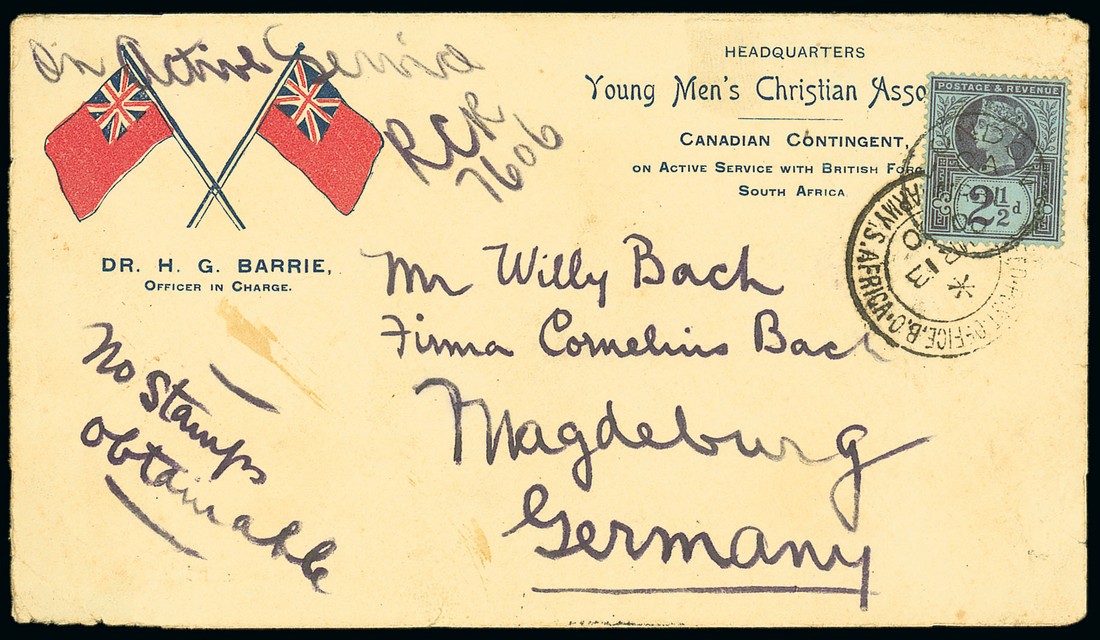 On Active Service
RCR
7606
HEADQUARTERS
Young Men's Christian Asso
CANADIAN CONTINGENT,
ON ACTIVE SERVICE WITH BRITISH FORC
SOUTH AFRICA
POSTAGE & REVENUE
2½d
DR. H. G. BARRIE,
OFFICER IN CHARGE.
Mr Willy Bach
Firma Cornelius Bach
Magdeburg
Germany
No Stamps
obtainable
ARMY.S.AFRICA
OFFICE.B.O.